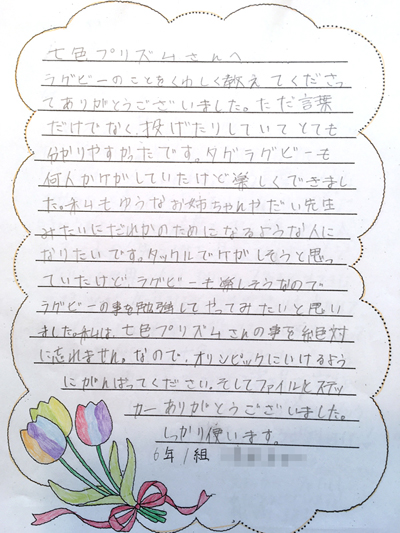 七色プリズムさんへ
ラグビーのことをくわしく教えてくださっ
てありがとうございました。ただ言葉
だけでなく、投げたりしていてとても
分かりやすかったです。タグラグビーも
何人かケガしていたけど楽しくできまし
た。私もゆうなお姉ちゃんやだい先生
みたいにだれかのためになるような人に
なりたいです。タックルでケがしそうと思っ
ていたけど、ラグビーも楽しそうなので
ラグビーの事を勉強してやってみたいと思い
ました。私は、七色プリズムさんの事を絶対
に忘れません。なので、オリンピックにいけるよう
にがんばってください。そしてファイルとステッ
カーありがとうございました。
しっかり使います。
6年1組